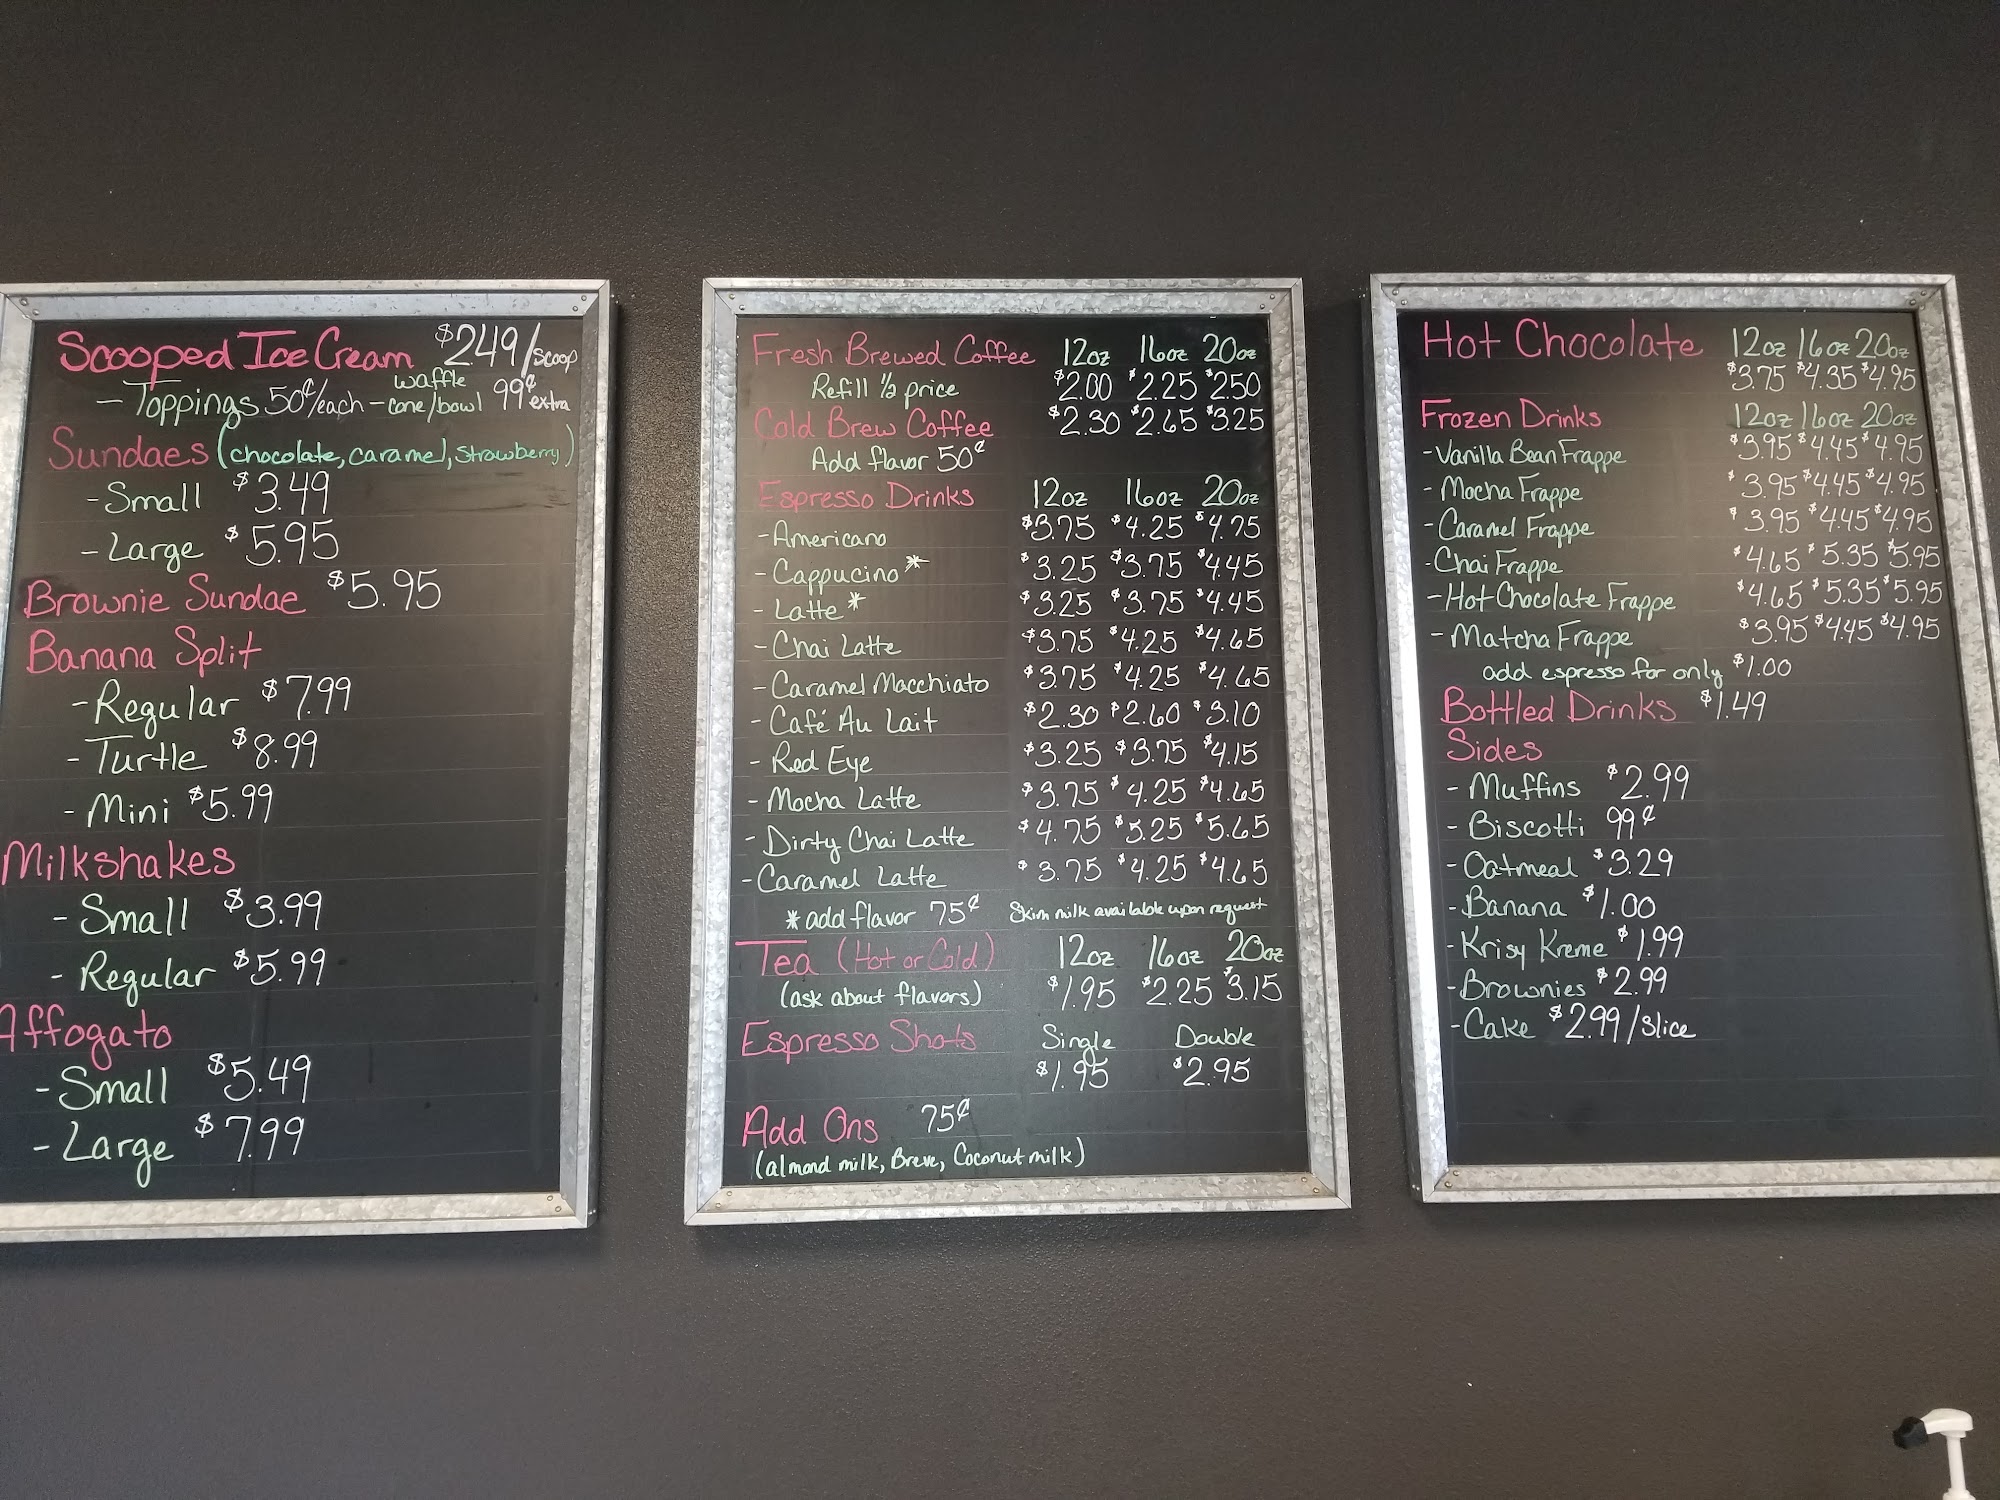 Scooped Ice Cream $2.49/scoop
- Toppings 50¢/each - waffle cone/bowl 99¢ extra
Sundaes (chocolate, caramel, strawberry)
- Small $3.49
- Large $5.95
Brownie Sundae $5.95
Banana Split
- Regular $7.99
- Turtle $8.99
- Mini $5.99
Milkshakes
- Small $3.99
- Regular $5.99
Affogato
- Small $5.49
- Large $7.99
Fresh Brewed Coffee 12oz 16oz 20oz
Refill ½ price $2.00 $2.25 $2.50
Cold Brew Coffee $2.30 $2.65 $3.25
Add flavor 50¢
Espresso Drinks 12oz 16oz 20oz
- Americano $3.75 $4.25 $4.75
- Cappucino* $3.25 $3.75 $4.45
- Latte* $3.25 $3.75 $4.45
- Chai Latte $3.75 $4.25 $4.65
- Caramel Macchiato $3.75 $4.25 $4.65
- Café Au Lait $2.30 $2.60 $3.10
- Red Eye $3.25 $3.75 $4.15
- Mocha Latte $3.75 $4.25 $4.65
- Dirty Chai Latte $4.75 $5.25 $5.65
- Caramel Latte $3.75 $4.25 $4.65
*add flavor 75¢ Skim milk available upon request
Tea (Hot or Cold) 12oz 16oz 20oz
(ask about flavors) $1.95 $2.25 $3.15
Espresso Shots Single Double
$1.95 $2.95
Add Ons 75¢
(almond milk, Breve, Coconut milk)
Hot Chocolate 12oz 16oz 20oz
$3.75 $4.35 $4.95
Frozen Drinks 12oz 16oz 20oz
- Vanilla Bean Frappe $3.95 $4.45 $4.95
- Mocha Frappe $3.95 $4.45 $4.95
- Caramel Frappe $3.95 $4.45 $4.95
- Chai Frappe $4.65 $5.35 $5.95
- Hot Chocolate Frappe $4.65 $5.35 $5.95
- Matcha Frappe $3.95 $4.45 $4.95
add espresso for only $1.00
Bottled Drinks $1.49
Sides
- Muffins $2.99
- Biscotti 99¢
- Oatmeal $3.29
- Banana $1.00
- Krisy Kreme $1.99
- Brownies $2.99
- Cake $2.99/slice